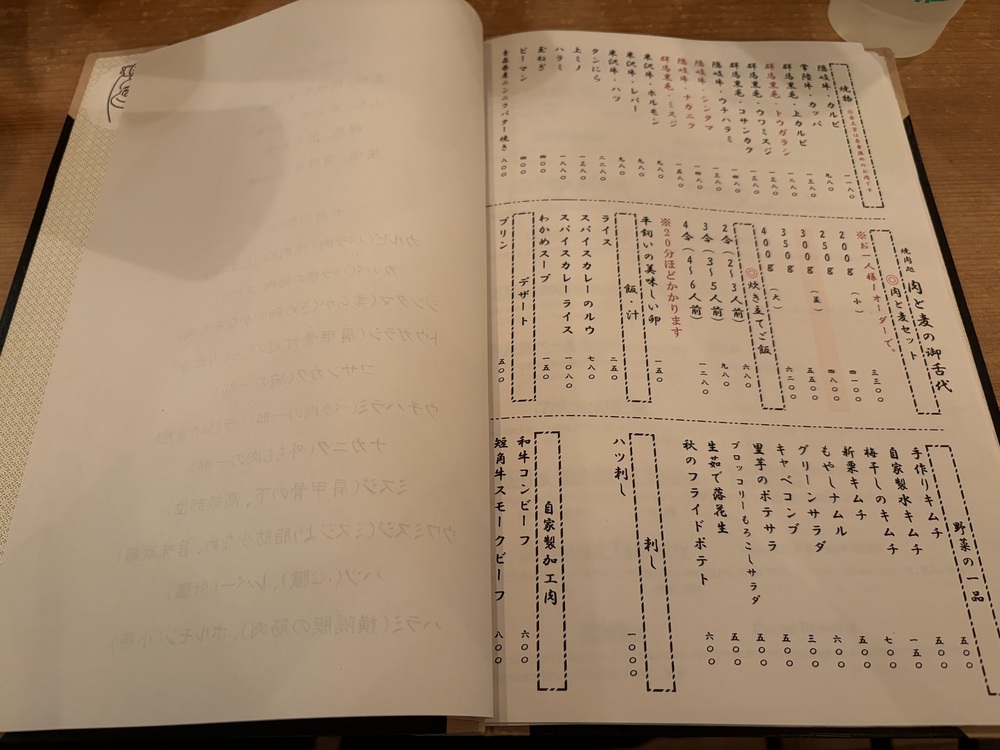 焼肉処 肉と麦の御舌代
焼物
隠岐牛・カルビ 一一八〇
常陸牛・カッパ 九八〇
群馬黒毛・上カルビ 一三八〇
群馬黒毛・トウガラシ 一二八〇
群馬黒毛・ウワミスジ 一三八〇
群馬黒毛・コサンカク 一三八〇
隠岐牛・ウチハラミ 一四八〇
隠岐牛・シンタマ 一三八〇
隠岐牛・ナカニク 一三八〇
群馬黒毛・ミスジ 一五八〇
米沢牛・ホルモン 九八〇
米沢牛・レバー 九八〇
米沢牛・ハツ 九八〇
タンにら 二二八〇
上ミノ 一三八〇
ハラミ 一八八〇
玉ねぎ 四〇〇
ピーマン 四〇〇
青森県産ニンニクバター焼き 八〇〇
◎肉と麦セット
※お一人様一オーダーで。
200g（小） 三三〇〇
250g 四一〇〇
300g（並） 四八〇〇
350g 五五〇〇
400g（大） 六二〇〇
◎炊き立てご飯
2合（2〜3人前） 六八〇
3合（3〜5人前） 九八〇
4合（4〜6人前） 一二八〇
※20分ほどかかります
平飼いの美味しい卵 一五〇
飯・汁
ライス 二五〇
スパイスカレーのルウ 七八〇
スパイスカレーライス 一〇八〇
わかめスープ 一五〇
デザート
プリン 五〇〇
野菜の一品
手作りキムチ 五〇〇
自家製水キムチ 五〇〇
梅干しのキムチ 一五〇
新栗キムチ 七〇〇
もやしナムル 五〇〇
グリーンサラダ 六〇〇
キャベコンブ 三〇〇
里芋のポテサラ 五〇〇
ブロッコリーもろこしサラダ 五〇〇
生茹で落花生 五〇〇
秋のフライドポテト 六〇〇
刺し
ハツ刺し 一〇〇〇
自家製加工肉
和牛コンビーフ 六〇〇
短角牛スモークビーフ 八〇〇